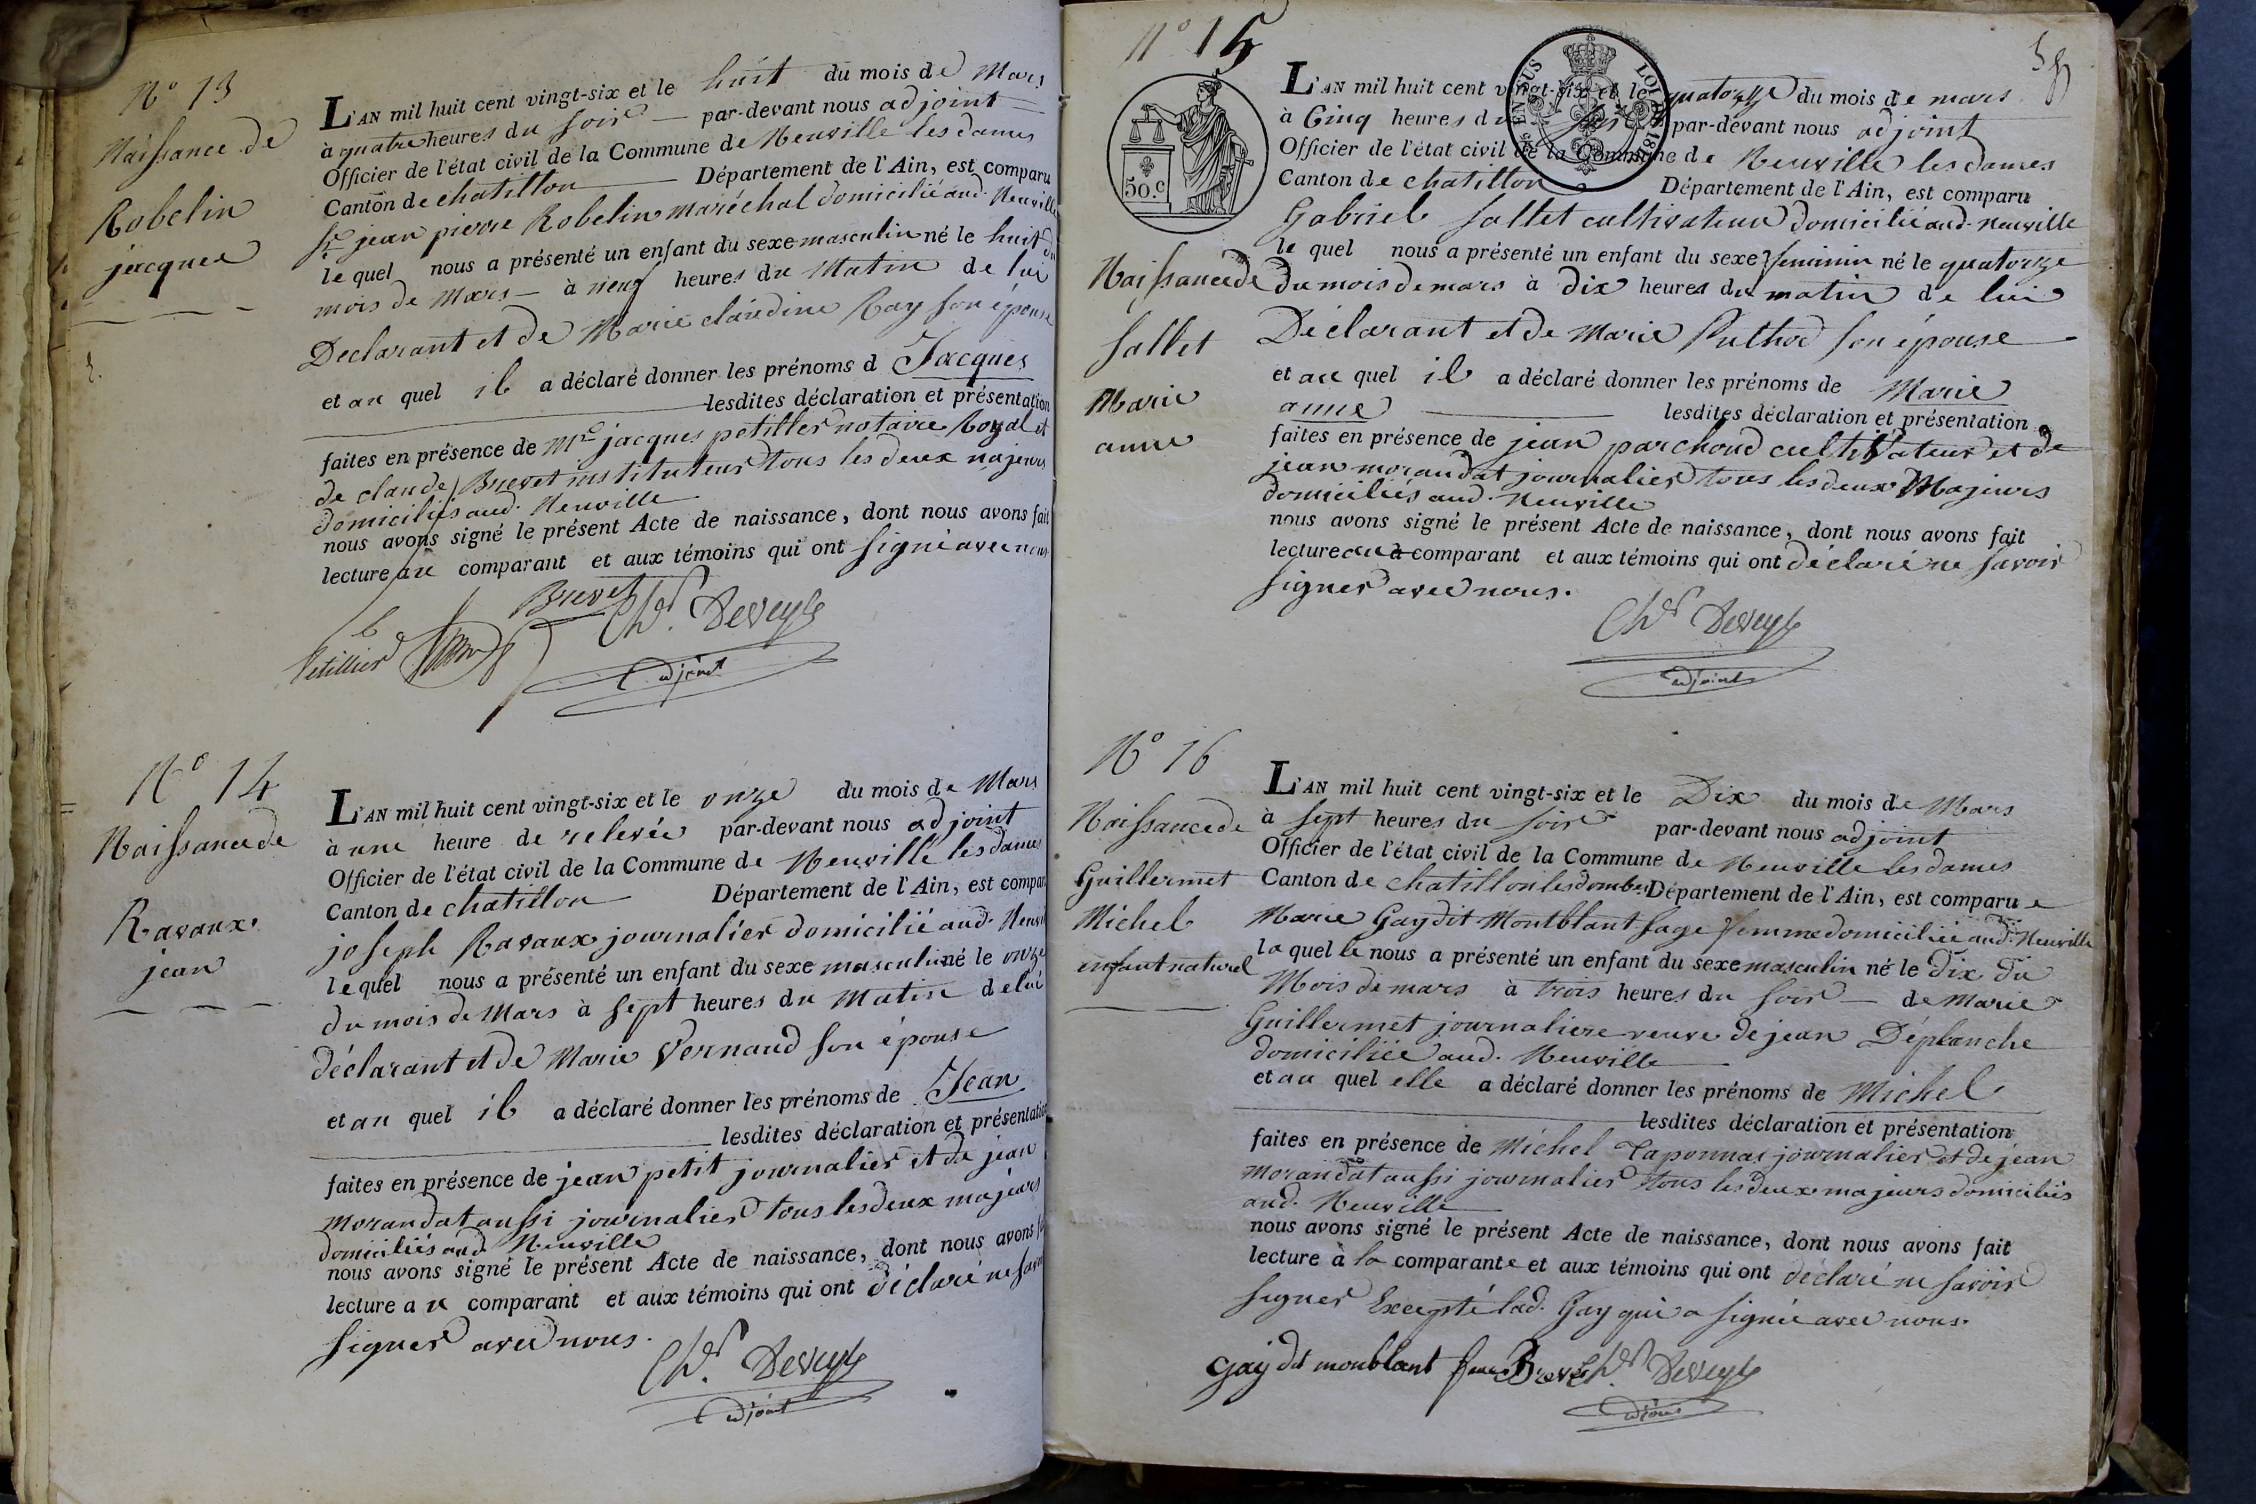 N° 13
Naissance de
Robelin
jacques
L'AN mil huit cent vingt-six et le huit du mois de Mars
à quatre heures du soir par-devant nous adjoint
Officier de l'état civil de la Commune de Neuville les dames
Canton de chatillon Département de l'Ain, est comparu
Sr. jean pierre Robelin maréchal domicilié aud. Neuville
le quel nous a présenté un enfant du sexe masculin né le huit du
mois de Mars à neuf heures du Matin de lui
Declarant et de Marie claudine Ray son épouse
et au quel il a déclaré donner les prénoms d Jacques
lesdites déclaration et présentation
faites en présence de Mre jacques petiller notaire Royal et
de claude Brevet instituteur tous les deux majeurs
domiciliés aud. Neuville
nous avons signé le présent Acte de naissance, dont nous avons fait
lecture au comparant et aux témoins qui ont signé avec nous.
Brevet Chr. Deveyle
Petillier
adjoint
N° 14
Naissance de
Ravaux
jean
L'AN mil huit cent vingt-six et le onze du mois de Mars
à une heure de relevée par-devant nous adjoint
Officier de l'état civil de la Commune de Neuville les dames
Canton de chatillon Département de l'Ain, est compar
joseph Ravaux journalier domicilié aud. Neuvil
le quel nous a présenté un enfant du sexe masculin né le onze
du mois de Mars à sept heures du Matin de lui
déclarant et de Marie Vernaud son épouse
et au quel il a déclaré donner les prénoms de Jean
lesdites déclaration et présentation
faites en présence de jean petit journalier et de jean
morandat aussi journalier tous les deux majeurs
domiciliés aud. Neuville
nous avons signé le présent Acte de naissance, dont nous avons f
lecture au comparant et aux témoins qui ont déclaré ne savoir
signer avec nous.
Chr. Deveyle
adjoint
N° 15
50.c
Naissance de
Sallet
Marie
anne
L'AN mil huit cent vingt-six et le quatorze du mois de mars
à Cinq heures du soir par-devant nous adjoint
Officier de l'état civil de la Commune de Neuville les dames
Canton de chatillon Département de l'Ain, est comparu
Gabriel Sallet cultivateur domicilié aud. Neuville
le quel nous a présenté un enfant du sexe feminin né le quatorze
du mois de mars à dix heures du matin de lui
Déclarant et de Marie Puthod son épouse
et au quel il a déclaré donner les prénoms de Marie
anne lesdites déclaration et présentation
faites en présence de jean parchoud cultivateur et de
jean morandat journalier tous les deux Majeurs
domiciliés aud. Neuville
nous avons signé le présent Acte de naissance, dont nous avons fait
lecture au comparant et aux témoins qui ont déclaré ne savoir
signer avec nous.
Chr. Deveyle
adjoint
N° 16
Naissance de
Guillermet
Michel
enfant naturel
L'AN mil huit cent vingt-six et le Dix du mois de Mars
à sept heures du soir par-devant nous adjoint
Officier de l'état civil de la Commune de Neuville les dames
Canton de chatillon les dombes Département de l'Ain, est comparu e
Marie Gay dit Montblant sage femme domiciliée aud. Neuville
la quel le nous a présenté un enfant du sexe masculin né le dix du
Mois de mars à trois heures du soir de Marie
Guillermet journaliere veuve de jean Déplanche
domiciliée aud. Neuville
et au quel elle a déclaré donner les prénoms de Michel
lesdites déclaration et présentation
faites en présence de Michel Taponnas journalier et de jean
morandat aussi journalier tous les deux majeurs domiciliés
aud. Neuville
nous avons signé le présent Acte de naissance, dont nous avons fait
lecture à la comparante et aux témoins qui ont déclaré ne savoir
signer Excepté lad. Gay qui a signée avec nous.
Gay dit monblant Brevet Chr. Deveyle
adjoint